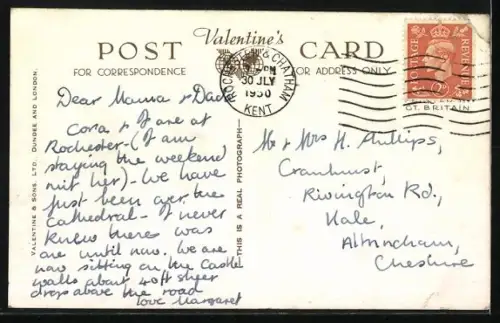 POST Valentine's CARD
FOR CORRESPONDENCE
FOR ADDRESS ONLY
ROCHESTER & CHATHAM
30 JLY
1950
KENT
POSTAGE REVENUE
GT. BRITAIN
VALENTINE & SONS. LTD. DUNDEE AND LONDON.
THIS IS A REAL PHOTOGRAPH
Dear Mama & Dad
Cora & I are at
Rochester - (I am
staying the weekend
wit her) - We have
just been over the
cathedral - I never
knew there was
one until now. We are
now sitting on the Castle
walls about 40ft sheer
drop above the road
love Margaret
Mr & Mrs H. Phillips,
Cranhurst,
Rivington Rd.,
Hale,
Altrincham,
Cheshire